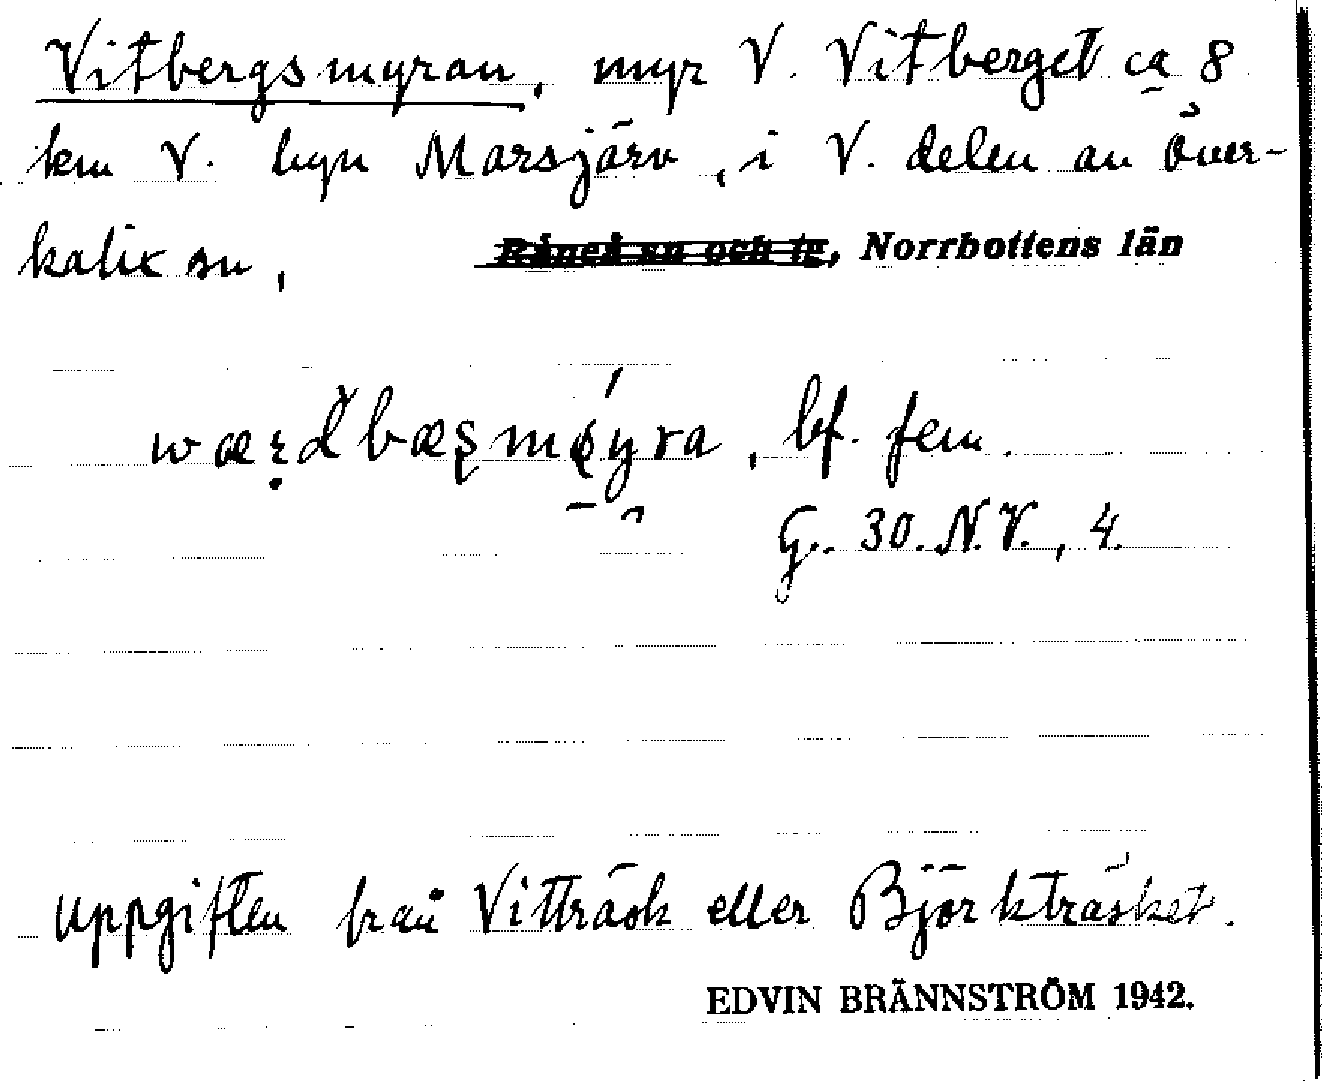 Vitbergsmyran, myr V. Vitberget ca 8
km V. byn Marsjärv, i V. delen av Över-
kalix sn, Råneå sn och tg, Norrbottens län
bf. fem.
G. 30. N.V., 4.
Uppgiften från Vitträsk eller Björkträsket.
EDVIN BRÄNNSTRÖM 1942.